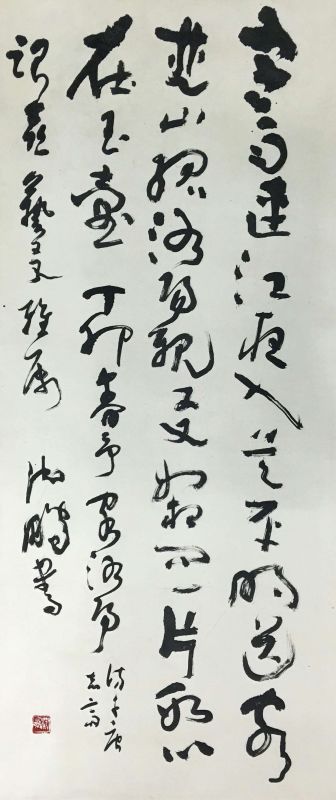 寒雨連江夜入吳平明送客
楚山孤洛陽親友如相問一片冰心
在玉壺丁卯春予客洛陽
藝友雅屬沈鵬書